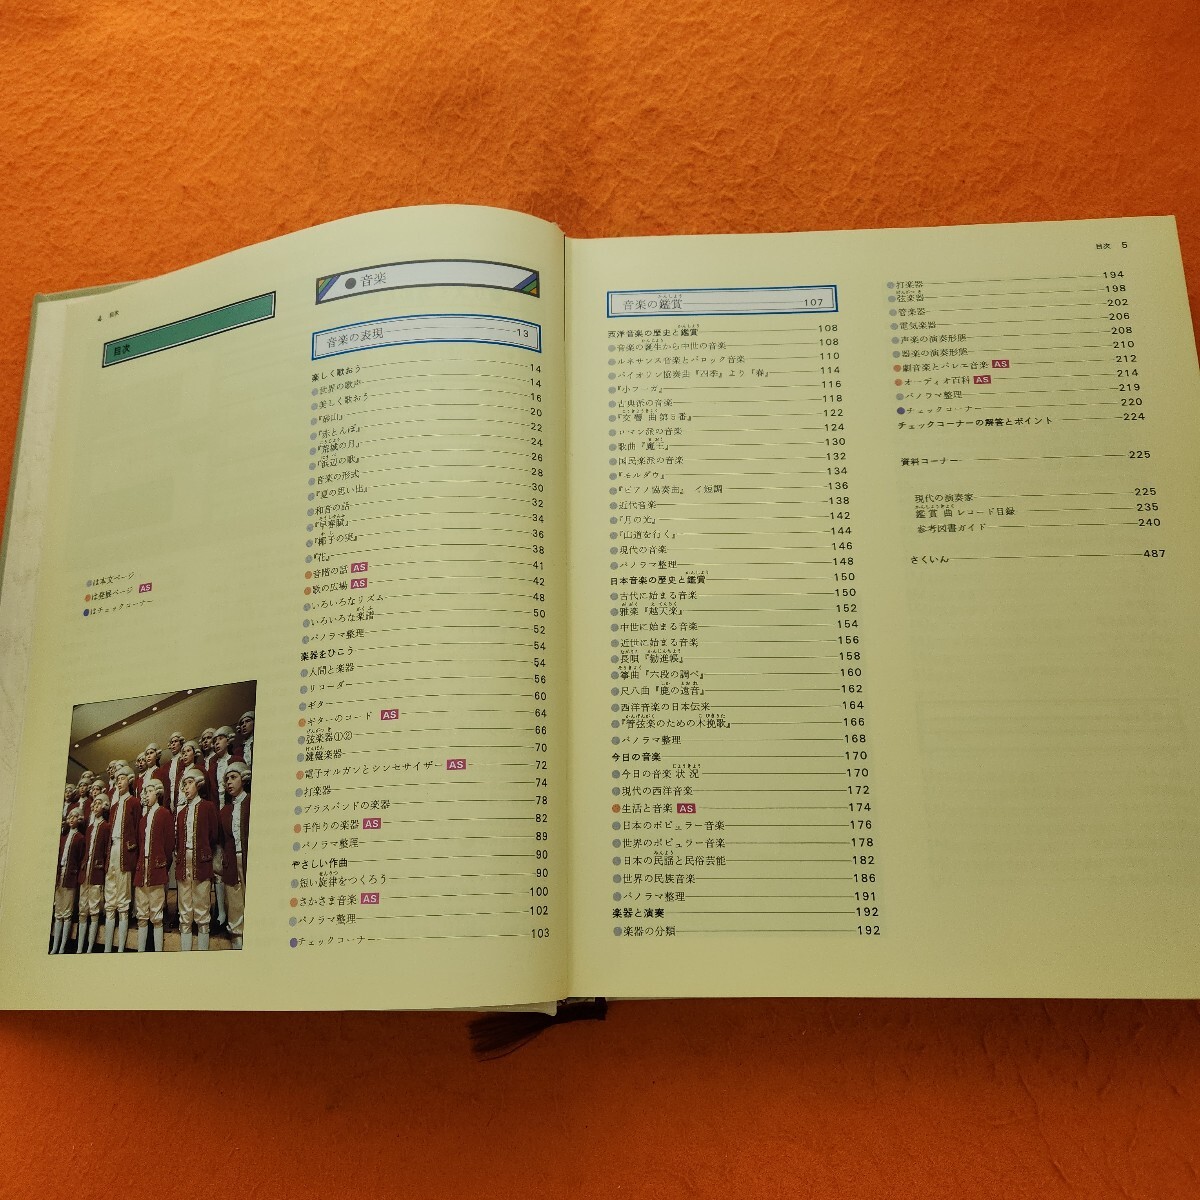 4 目次
目次
●は本文ページ
●は発展ページ AS
●はチェックコーナー
●音楽
音楽の表現 13
楽しく歌おう 14
世界の歌声 14
美しく歌おう 16
『砂山』 20
『赤とんぼ』 22
『荒城の月』 24
『浜辺の歌』 26
音楽の形式 28
『夏の思い出』 30
和音の話 32
『早春賦』 34
『椰子の実』 36
『花』 38
音階の話 AS 41
歌の広場 AS 42
いろいろなリズム 48
いろいろな楽譜 50
パノラマ整理 52
楽器をひこう 54
人間と楽器 54
リコーダー 56
ギター 60
ギターのコード AS 64
弦楽器①② 66
鍵盤楽器 70
電子オルガンとシンセサイザー AS 72
打楽器 74
ブラスバンドの楽器 78
手作りの楽器 AS 82
パノラマ整理 89
やさしい作曲 90
短い旋律をつくろう 90
さかさま音楽 AS 100
パノラマ整理 102
チェックコーナー 103
目次 5
音楽の鑑賞 107
西洋音楽の歴史と鑑賞 108
音楽の誕生から中世の音楽 108
ルネサンス音楽とバロック音楽 110
バイオリン協奏曲『四季』より『春』 114
『小フーガ』 116
古典派の音楽 118
『交響曲第5番』 122
ロマン派の音楽 124
歌曲『魔王』 130
国民楽派の音楽 132
『モルダウ』 134
『ピアノ協奏曲』 イ短調 136
近代音楽 138
『月の光』 142
『山道を行く』 144
現代の音楽 146
パノラマ整理 148
日本音楽の歴史と鑑賞 150
古代に始まる音楽 150
雅楽『越天楽』 152
中世に始まる音楽 154
近世に始まる音楽 156
長唄『勧進帳』 158
箏曲『六段の調べ』 160
尺八曲『鹿の遠音』 162
西洋音楽の日本伝来 164
『管弦楽のための木挽歌』 166
パノラマ整理 168
今日の音楽 170
今日の音楽状況 170
現代の西洋音楽 172
生活と音楽 AS 174
日本のポピュラー音楽 176
世界のポピュラー音楽 178
日本の民謡と民俗芸能 182
世界の民族音楽 186
パノラマ整理 191
楽器と演奏 192
楽器の分類 192
打楽器 194
弦楽器 198
管楽器 202
電気楽器 206
声楽の演奏形態 208
器楽の演奏形態 210
劇音楽とバレエ音楽 AS 212
オーディオ百科 AS 214
パノラマ整理 219
チェックコーナー 220
チェックコーナーの解答とポイント 224
資料コーナー 225
現代の演奏家 225
鑑賞曲レコード目録 235
参考図書ガイド 240
さくいん 487